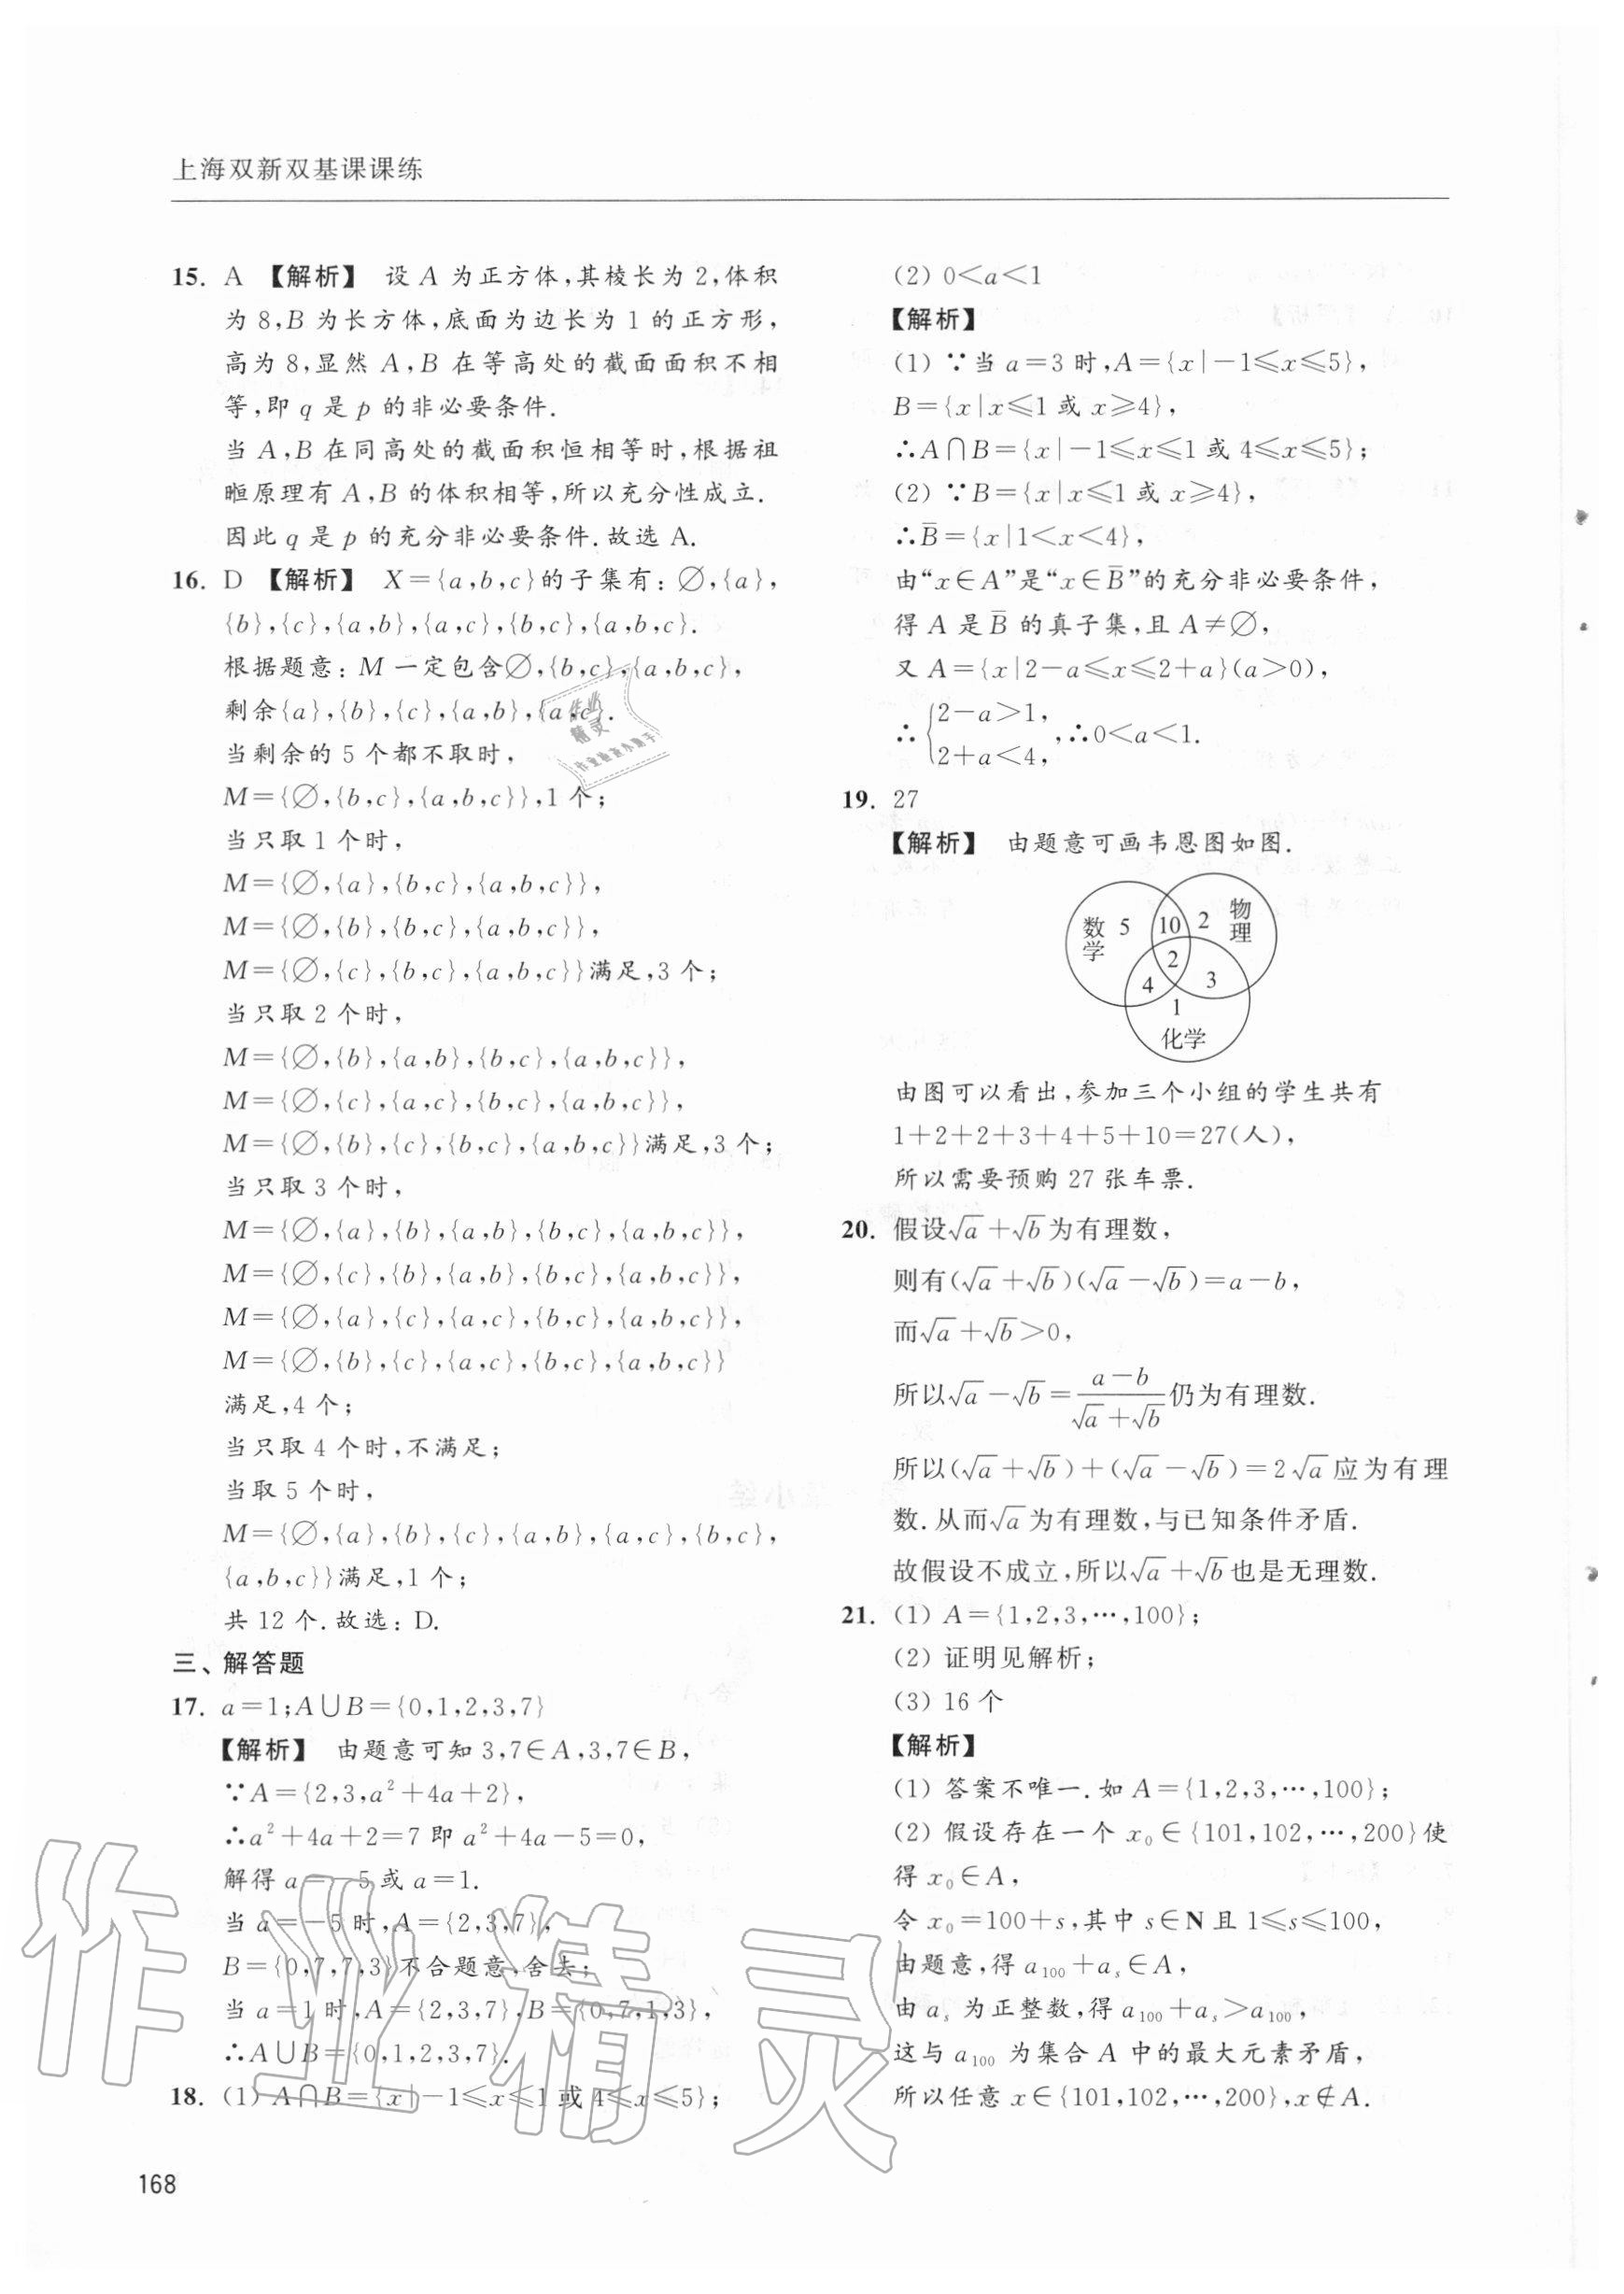 上海双新双基课课练
15. A 【解析】 设 A 为正方体,其棱长为 2,体积
为 8,B 为长方体,底面为边长为 1 的正方形,
高为 8,显然 A,B 在等高处的截面面积不相
等,即 q 是 p 的非必要条件.
当 A,B 在同高处的截面积恒相等时,根据祖
暅原理有 A,B 的体积相等,所以充分性成立.
因此 q 是 p 的充分非必要条件.故选 A.
16. D 【解析】 X={a,b,c}的子集有:∅,{a},
{b},{c},{a,b},{a,c},{b,c},{a,b,c}.
根据题意:M 一定包含∅,{b,c},{a,b,c},
剩余{a},{b},{c},{a,b},{a,c}.
当剩余的 5 个都不取时,
M={∅,{b,c},{a,b,c}},1 个;
当只取 1 个时,
M={∅,{a},{b,c},{a,b,c}},
M={∅,{b},{b,c},{a,b,c}},
M={∅,{c},{b,c},{a,b,c}}满足,3 个;
当只取 2 个时,
M={∅,{b},{a,b},{b,c},{a,b,c}},
M={∅,{c},{a,c},{b,c},{a,b,c}},
M={∅,{b},{c},{b,c},{a,b,c}}满足,3 个;
当只取 3 个时,
M={∅,{a},{b},{a,b},{b,c},{a,b,c}},
M={∅,{c},{b},{a,b},{b,c},{a,b,c}},
M={∅,{a},{c},{a,c},{b,c},{a,b,c}},
M={∅,{b},{c},{a,c},{b,c},{a,b,c}}
满足,4 个;
当只取 4 个时,不满足;
当取 5 个时,
M={∅,{a},{b},{c},{a,b},{a,c},{b,c},
{a,b,c}}满足,1 个;
共 12 个.故选:D.
三、解答题
17. a=1;A∪B={0,1,2,3,7}
【解析】 由题意可知 3,7∈A,3,7∈B,
∵A={2,3,a²+4a+2},
∴a²+4a+2=7 即 a²+4a-5=0,
解得 a=-5 或 a=1.
当 a=-5 时,A={2,3,7},
B={0,7,7,3}不合题意,舍去;
当 a=1 时,A={2,3,7},B={0,7,1,3},
∴A∪B={0,1,2,3,7}.
18. (1) A∩B={x|-1≤x≤1 或 4≤x≤5};
(2) 0<a<1
【解析】
(1) ∵当 a=3 时,A={x|-1≤x≤5},
B={x|x≤1 或 x≥4},
∴A∩B={x|-1≤x≤1 或 4≤x≤5};
(2) ∵B={x|x≤1 或 x≥4},
∴B̅={x|1<x<4},
由“x∈A”是“x∈B̅”的充分非必要条件,
得 A 是 B̅ 的真子集,且 A≠∅,
又 A={x|2-a≤x≤2+a}(a>0),
∴{2-a>1,
2+a<4, ,∴0<a<1.
19. 27
【解析】 由题意可画韦恩图如图.
数学 5 10 2 物理
2
4 3
1
化学
由图可以看出,参加三个小组的学生共有
1+2+2+3+4+5+10=27(人),
所以需要预购 27 张车票.
20. 假设√a+√b为有理数,
则有(√a+√b)(√a-√b)=a-b,
而√a+√b>0,
所以√a-√b=(a-b)/(√a+√b)仍为有理数.
所以(√a+√b)+(√a-√b)=2√a应为有理
数.从而√a为有理数,与已知条件矛盾.
故假设不成立,所以√a+√b也是无理数.
21. (1) A={1,2,3,…,100};
(2) 证明见解析;
(3) 16 个
【解析】
(1) 答案不唯一.如 A={1,2,3,…,100};
(2) 假设存在一个 x₀∈{101,102,…,200}使
得 x₀∈A,
令 x₀=100+s,其中 s∈N 且 1≤s≤100,
由题意,得 a₁₀₀+aₛ∈A,
由 aₛ 为正整数,得 a₁₀₀+aₛ>a₁₀₀,
这与 a₁₀₀ 为集合 A 中的最大元素矛盾,
所以任意 x∈{101,102,…,200},x∉A.
168
作业精灵
作业精灵